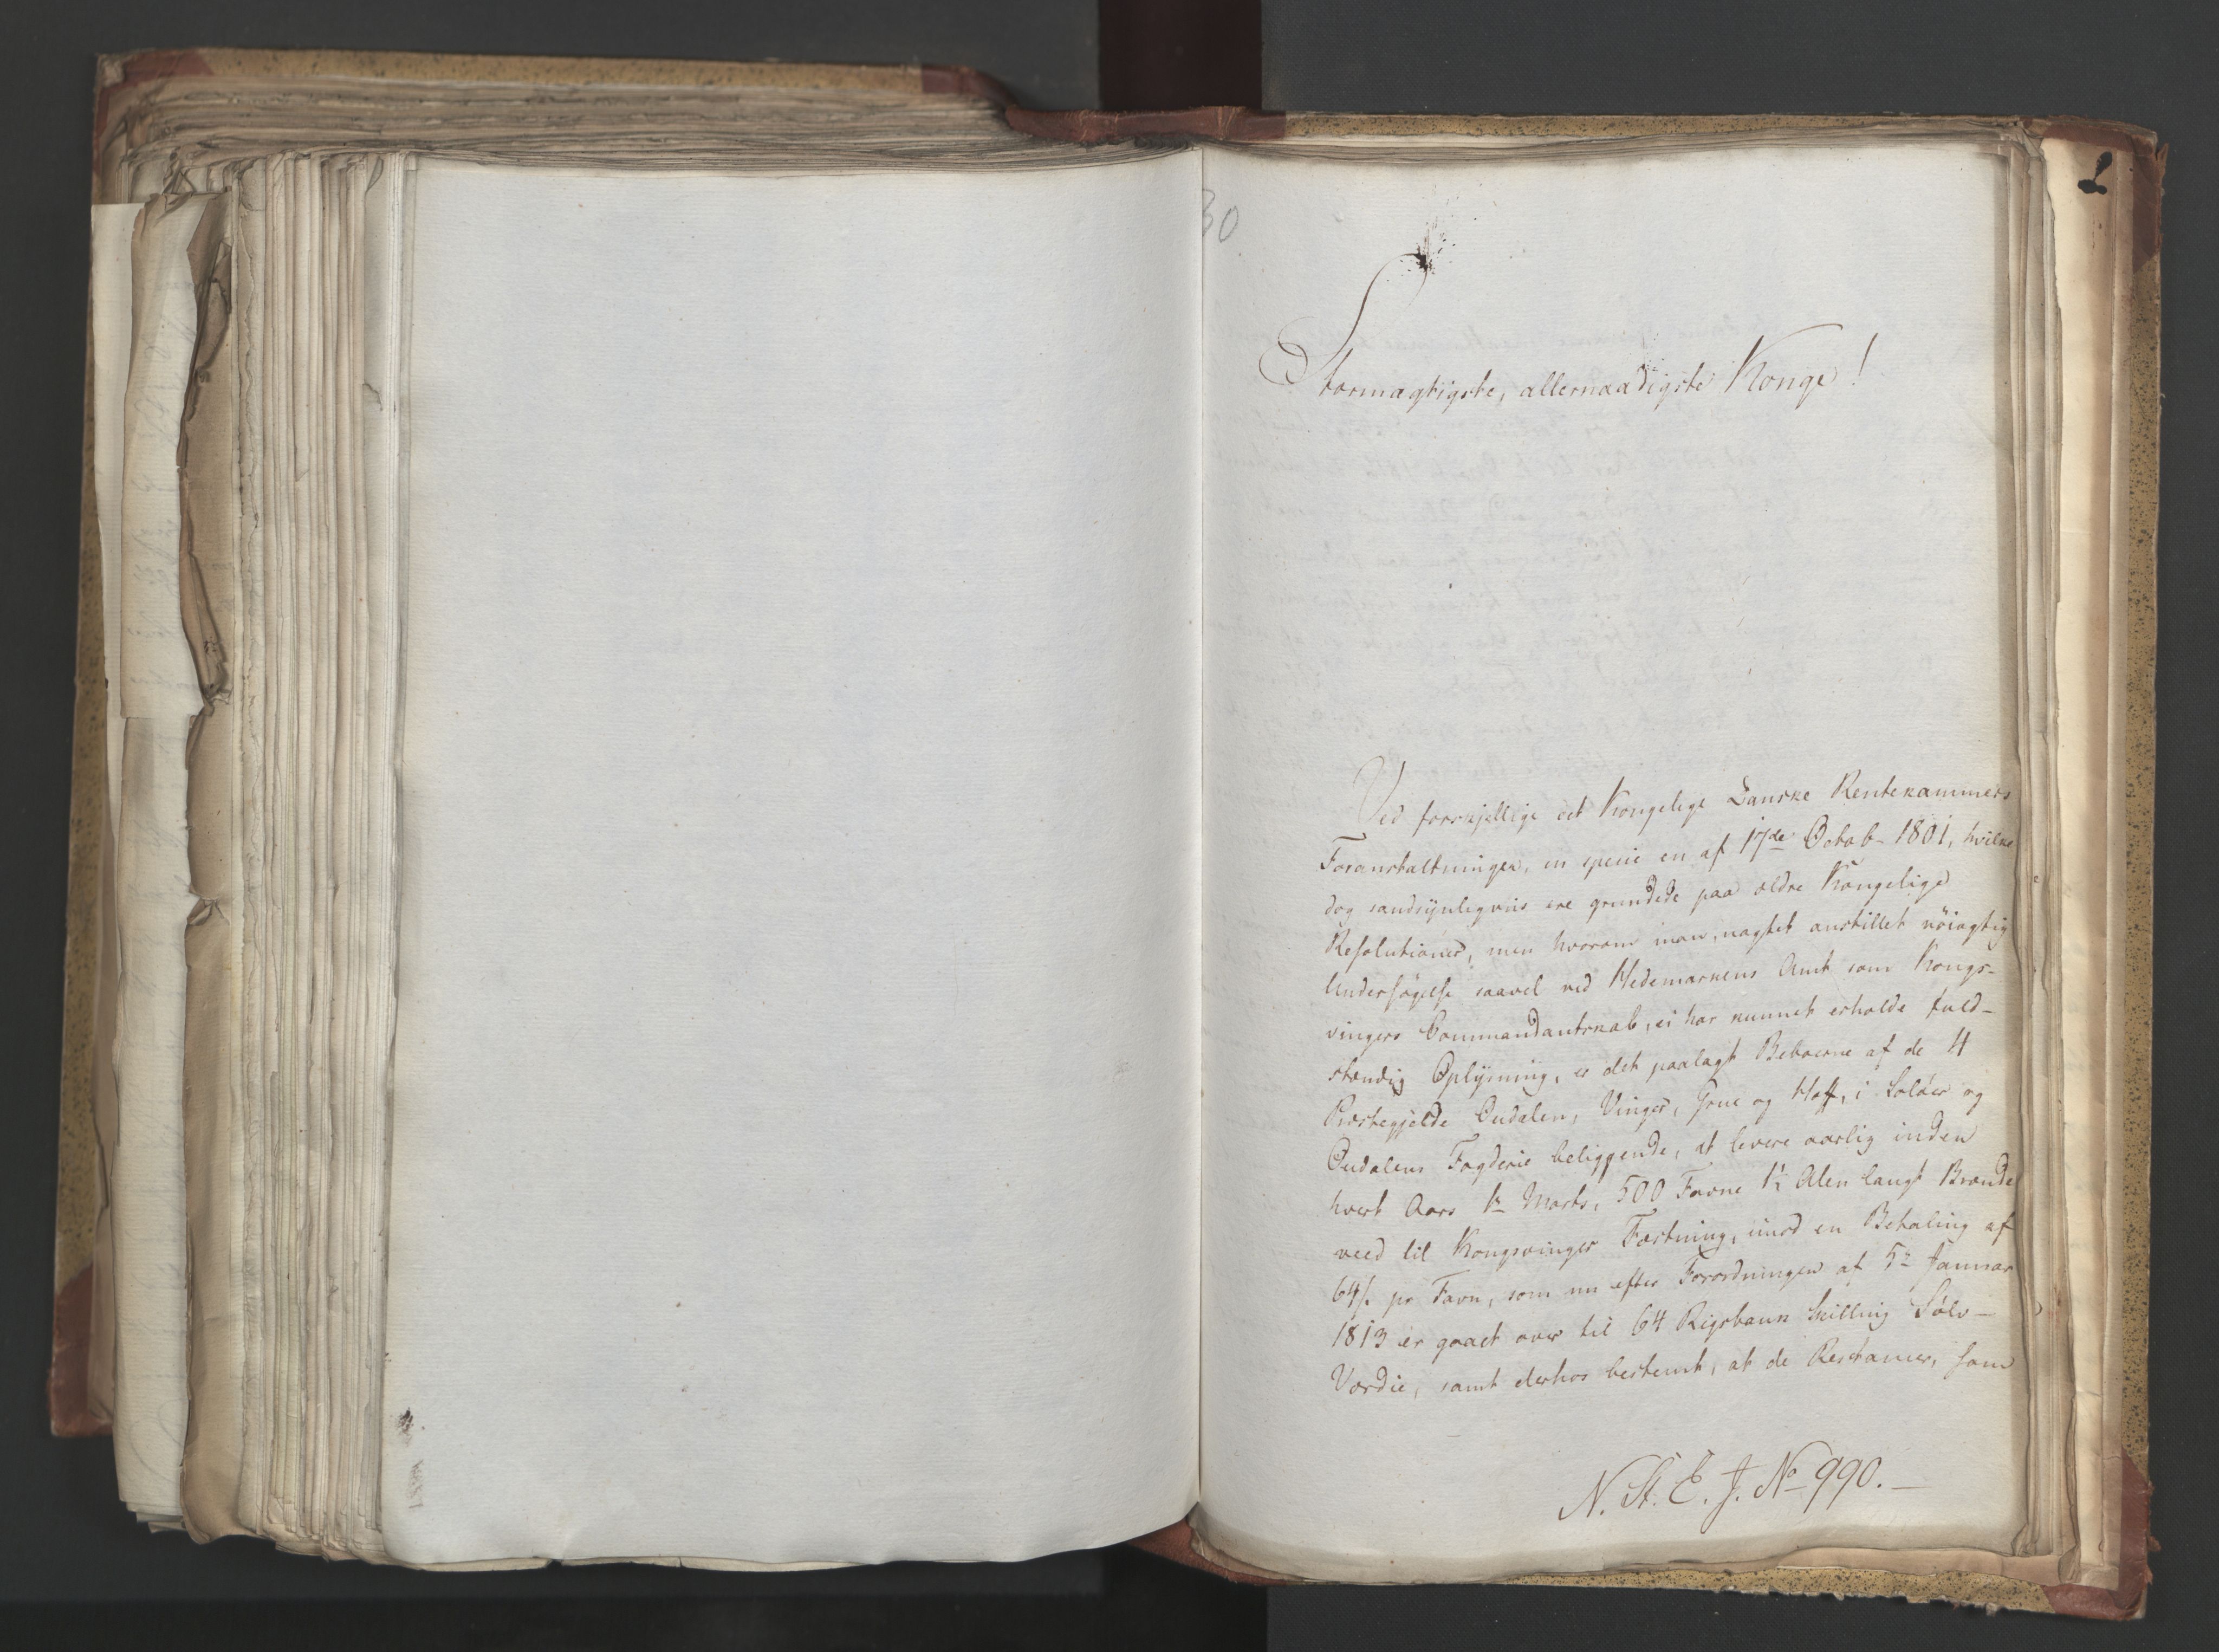 30
Stormægtigste, allernaadigste Konge!
Ved forskjellige det Kongelige Danske Rentekammers
Foranstaltninger, in specie en af 17de Octob. 1801, hvilke
dog sandsynligviis ere grundede paa ældre Kongelige
Resolutioner, men hvorom man, uagtet anstillet nöiagtig
Undersøgelse saavel ved Hedemarkens Amt som Kongs-
vingers Commandantskab, ei har kunnet erholde fuld-
stændig Oplysning, er det paalagt Beboerne af de 4
Præstegjelde Oudalen, Vinger, Grue og Hoff, i Soløer og
Oudalens Fogderie beliggende, at levere aarlig inden
hvert Aars 1ste Marts, 500 Favne 1½ Alen langt Brænde
veed til Kongsvinger Fæstning, imod en Betaling af
64 s. pr Favn, som nu efter Forordningen af 5te Januar
1813 er gaaet over til 64 Rigsbank Skilling Sølv-
Værdie, samt derhos bestemt, at de Restancer, som
N. St. E. J. No 990.-